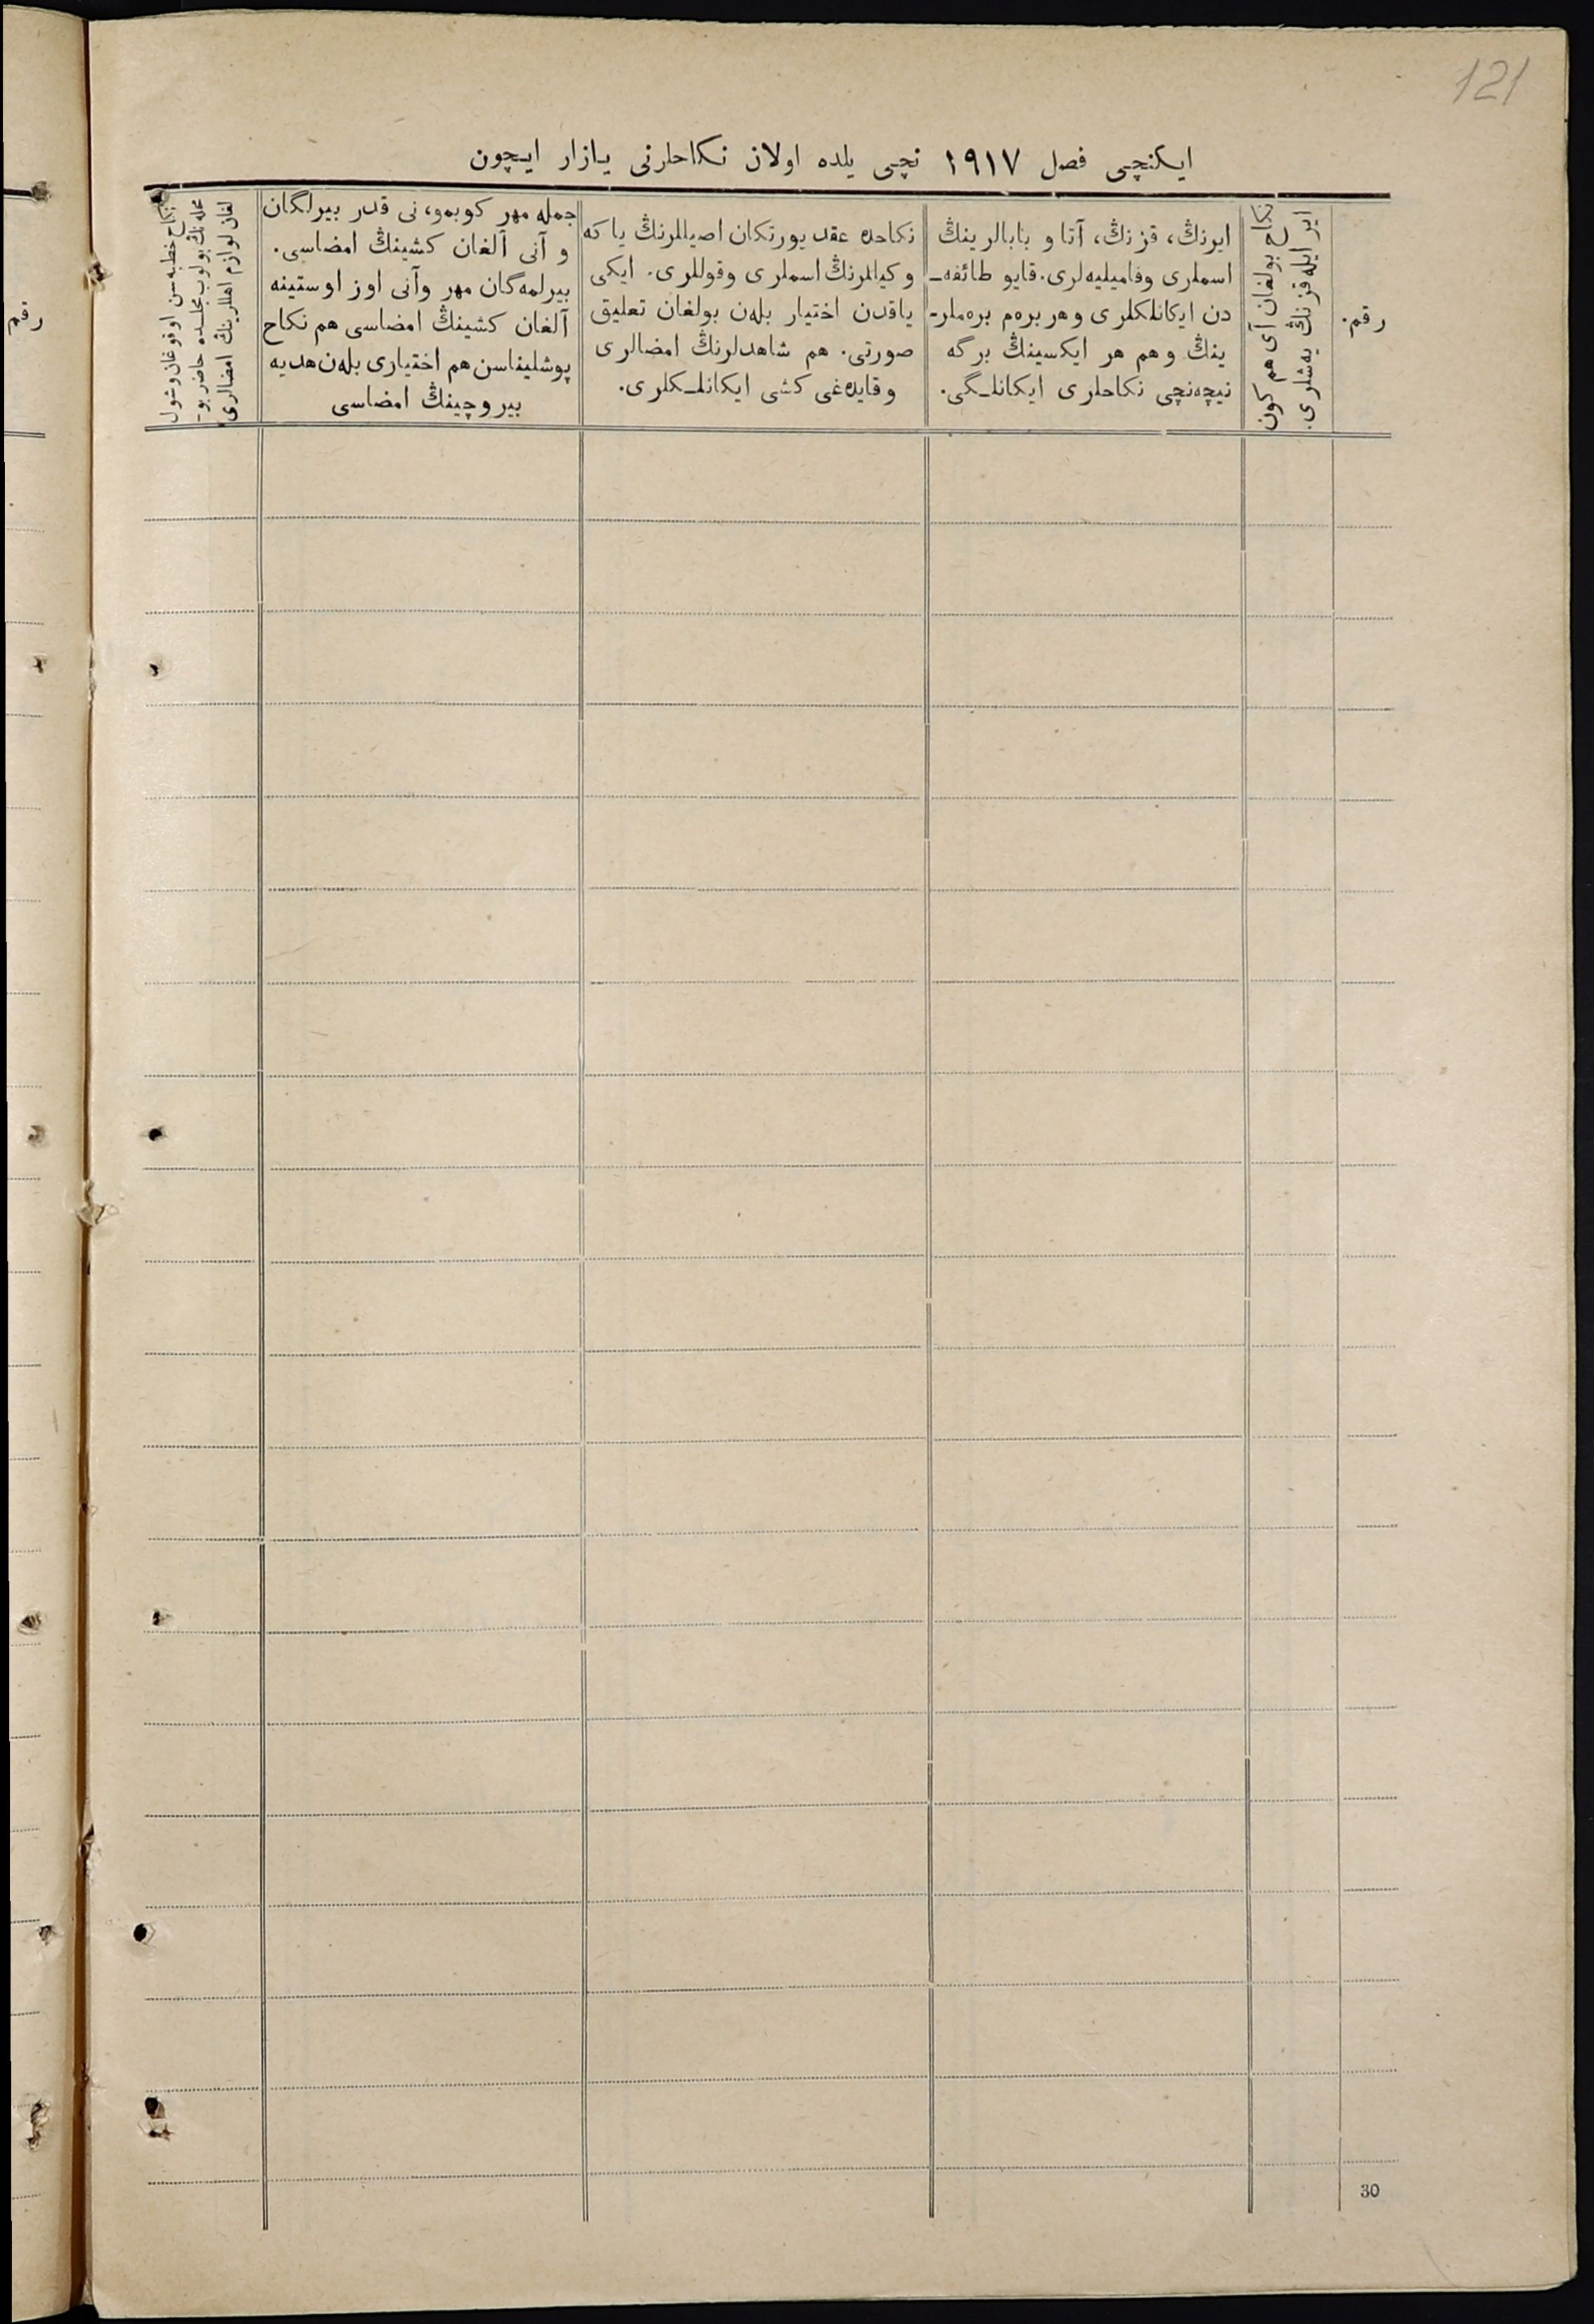 121
ایکنچی فصل ۱۹۱۷ نچی یلده اولان نکاحلرنی یازار ایچون
رقم.
نکاح بولغان آی هم کون
ایر ایله قزنڭ یه‌شلری.
ایرنڭ، قزنڭ، آتا و بابالرینڭ
اسملری وفامیلیه‌لری. قایو طائفه‌ـ
دن ایکانلکلری وهر بره‌م بره‌ملرـ
ینڭ وهم هر ایکسینڭ برگه
نیچه‌نچی نکاحلری ایکانلـگی.
نکاحده عقد یورتکان اصیللرنڭ یا که
وکیللرنڭ اسملری وقوللری. ایکی
یاقدن اختیار بله‌ن بولغان تعلیق
صورتی. هم شاهدلرنڭ امضالری
وقایده‌غی کشی ایکانلـکلری.
جمله مهر کوبمو، نی قدر بیرلگان
و آنی آلغان کشینڭ امضاسی.
بیرلمه‌گان مهر وآنی اوز اوستینه
آلغان کشینڭ امضاسی هم نکاح
پوشلیناسن هم اختیاری بله‌ن هدیه
بیروچینڭ امضاسی
نکاح خطبه‌سن اوقوغان وشول
محله‌نڭ بولوب مجلسده حاضر بوـ
لغان لوازم اهللرینڭ امضالری
رقم
30